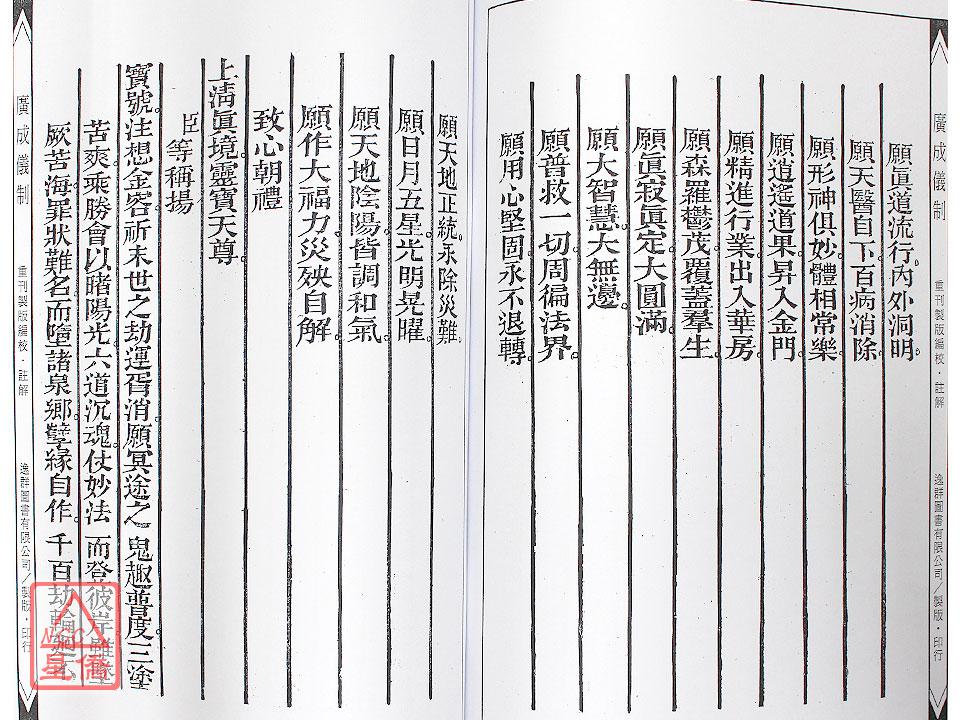 廣成儀制
重刊製版編校・註解
逸群圖書有限公司／製版・印行
願眞道流行。內外洞明。
願天醫自下。百病消除。
願形神俱妙。體相常樂。
願逍遙道果。昇入金門。
願精進行業。出入華房。
願森羅鬱茂。覆蓋羣生。
願眞寂眞定。大圓滿。
願大智慧。大無邊。
願普救一切。周徧法界。
願用心堅固。永不退轉。
願天地正統。永除災難。
願日月五星。光明晃曜。
願天地陰陽。皆調和氣。
願作大福力。災殃自解。
致心朝禮
上淸眞境。靈寶天尊。
臣等稱揚
寶號。注想金容。祈末世之劫運胥消。願冥途之鬼趣普度。三塗
苦爽。乘勝會以睹陽光。六道沉魂。仗妙法而登彼岸。雖墜
厥苦海。罪狀難名。而墮諸泉鄉。孽緣自作。千百劫
廣成儀制
重刊製版編校・註解
逸群圖書有限公司／製版・印行
星僑